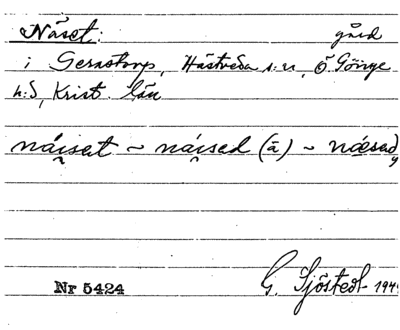 Näset: gård
i Gersstorp, Hästveda sn, Ö. Göinge
h:d, Krist. län
nái̯sat ~ nái̯sed (ā) ~ náesad
Nr 5424 G. Sjöstedt 194